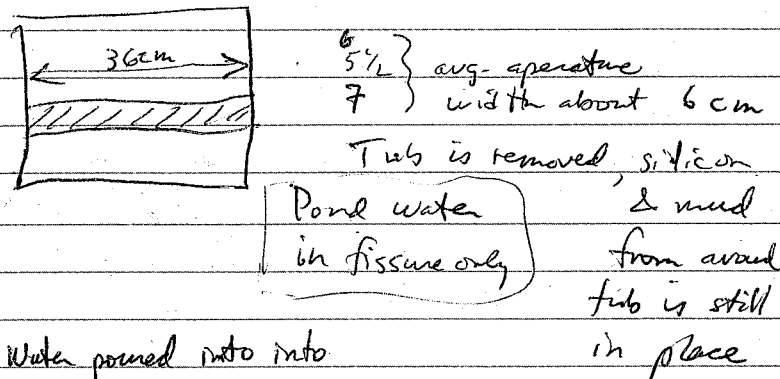 36cm
6
5 1/2 } avg. aperature
7 } width about 6 cm
Tub is removed, silicon
& mud
from around
tub is still
in place
Pond water
in fissure only
Water poured into into